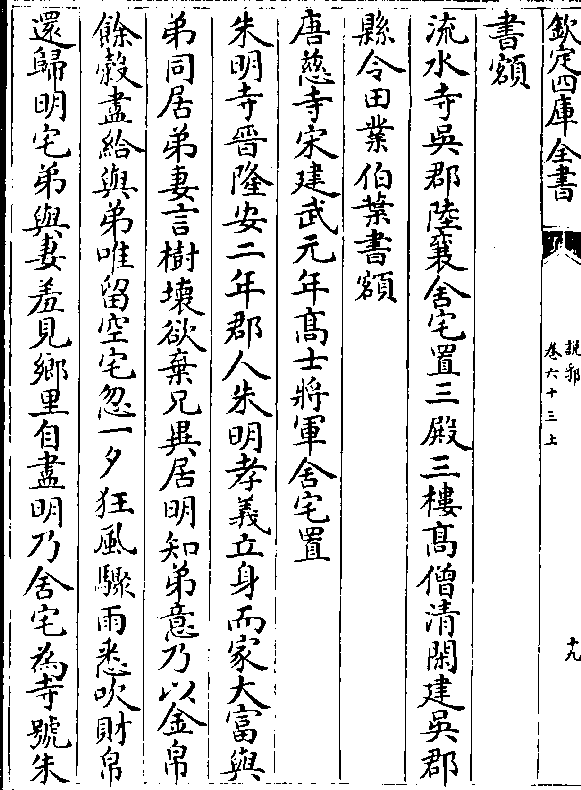 欽定四庫全書
說郛
卷六十三上
十九
書額
流水寺吳郡陸襄舍宅置三殿三樓髙僧清閑建吳郡
縣令田業伯葉書額
唐慈寺宋建武元年髙士將軍舍宅置
朱明寺晉隆安二年郡人朱明孝義立身而家大富與
弟同居弟妻言樹壞欲棄兄異居明知弟意乃以金帛
餘榖盡給與弟唯留空宅忽一夕狂風驟雨悉吹財帛
還歸明宅弟與妻羞見鄉里自盡明乃舍宅為寺號朱